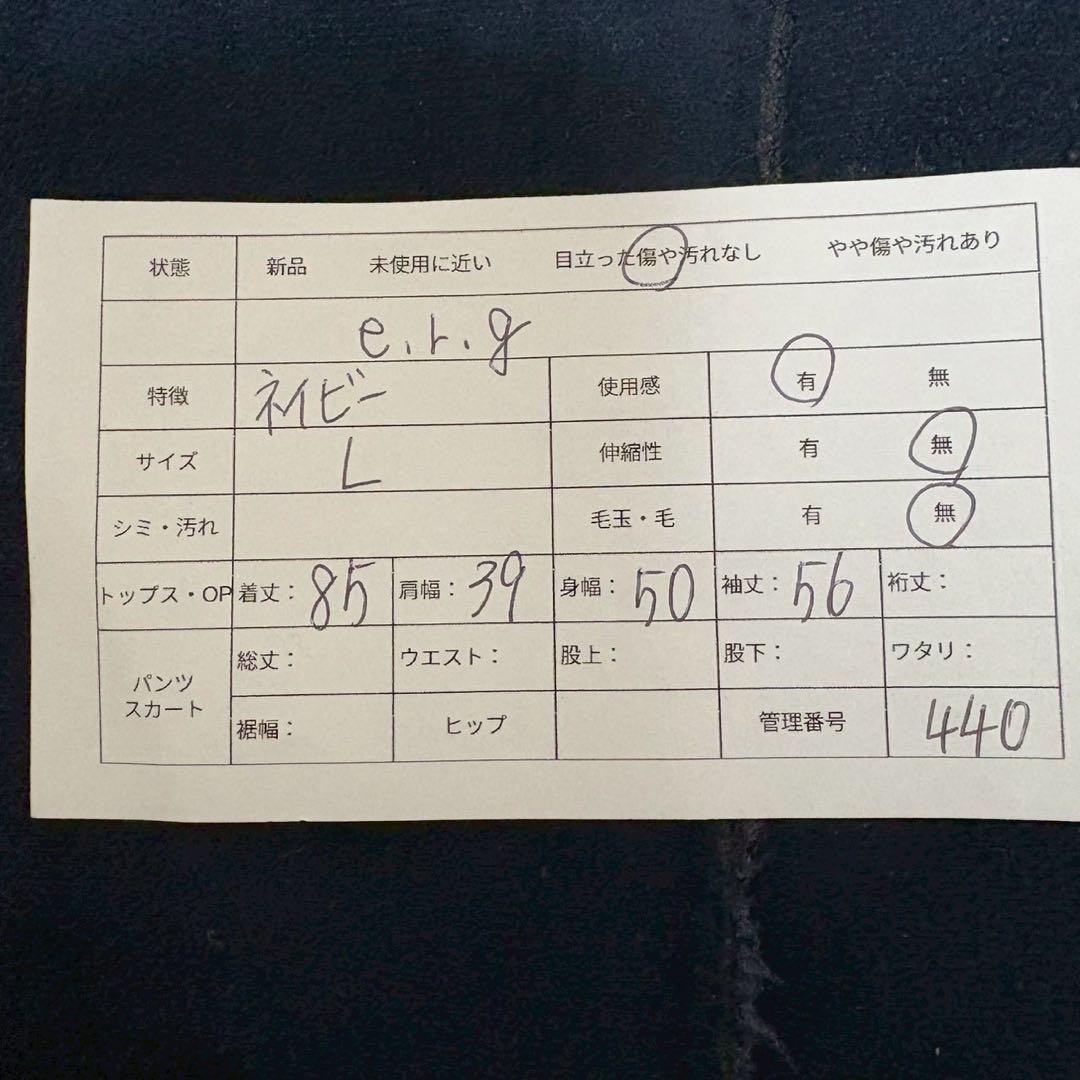 状態 新品 未使用に近い 目立った傷や汚れなし やや傷や汚れあり
e.r.g
特徴 ネイビー 使用感 有 無
サイズ L 伸縮性 有 無
シミ・汚れ 毛玉・毛 有 無
トップス・OP 着丈：85 肩幅：39 身幅：50 袖丈：56 裄丈：
パンツ スカート 総丈： ウエスト： 股上： 股下： ワタリ：
裾幅： ヒップ 管理番号 440